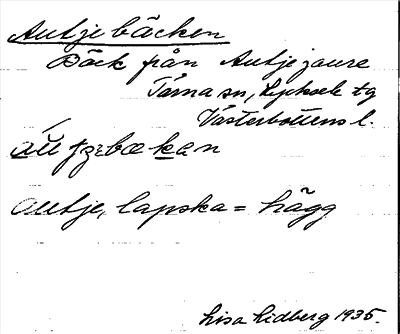 Autjebäcken
Bäck från Autjejaure
Tärna sn, Lycksele tg
Västerbottens l.
autje, lapska = hägg
Lisa Lidberg 1935.